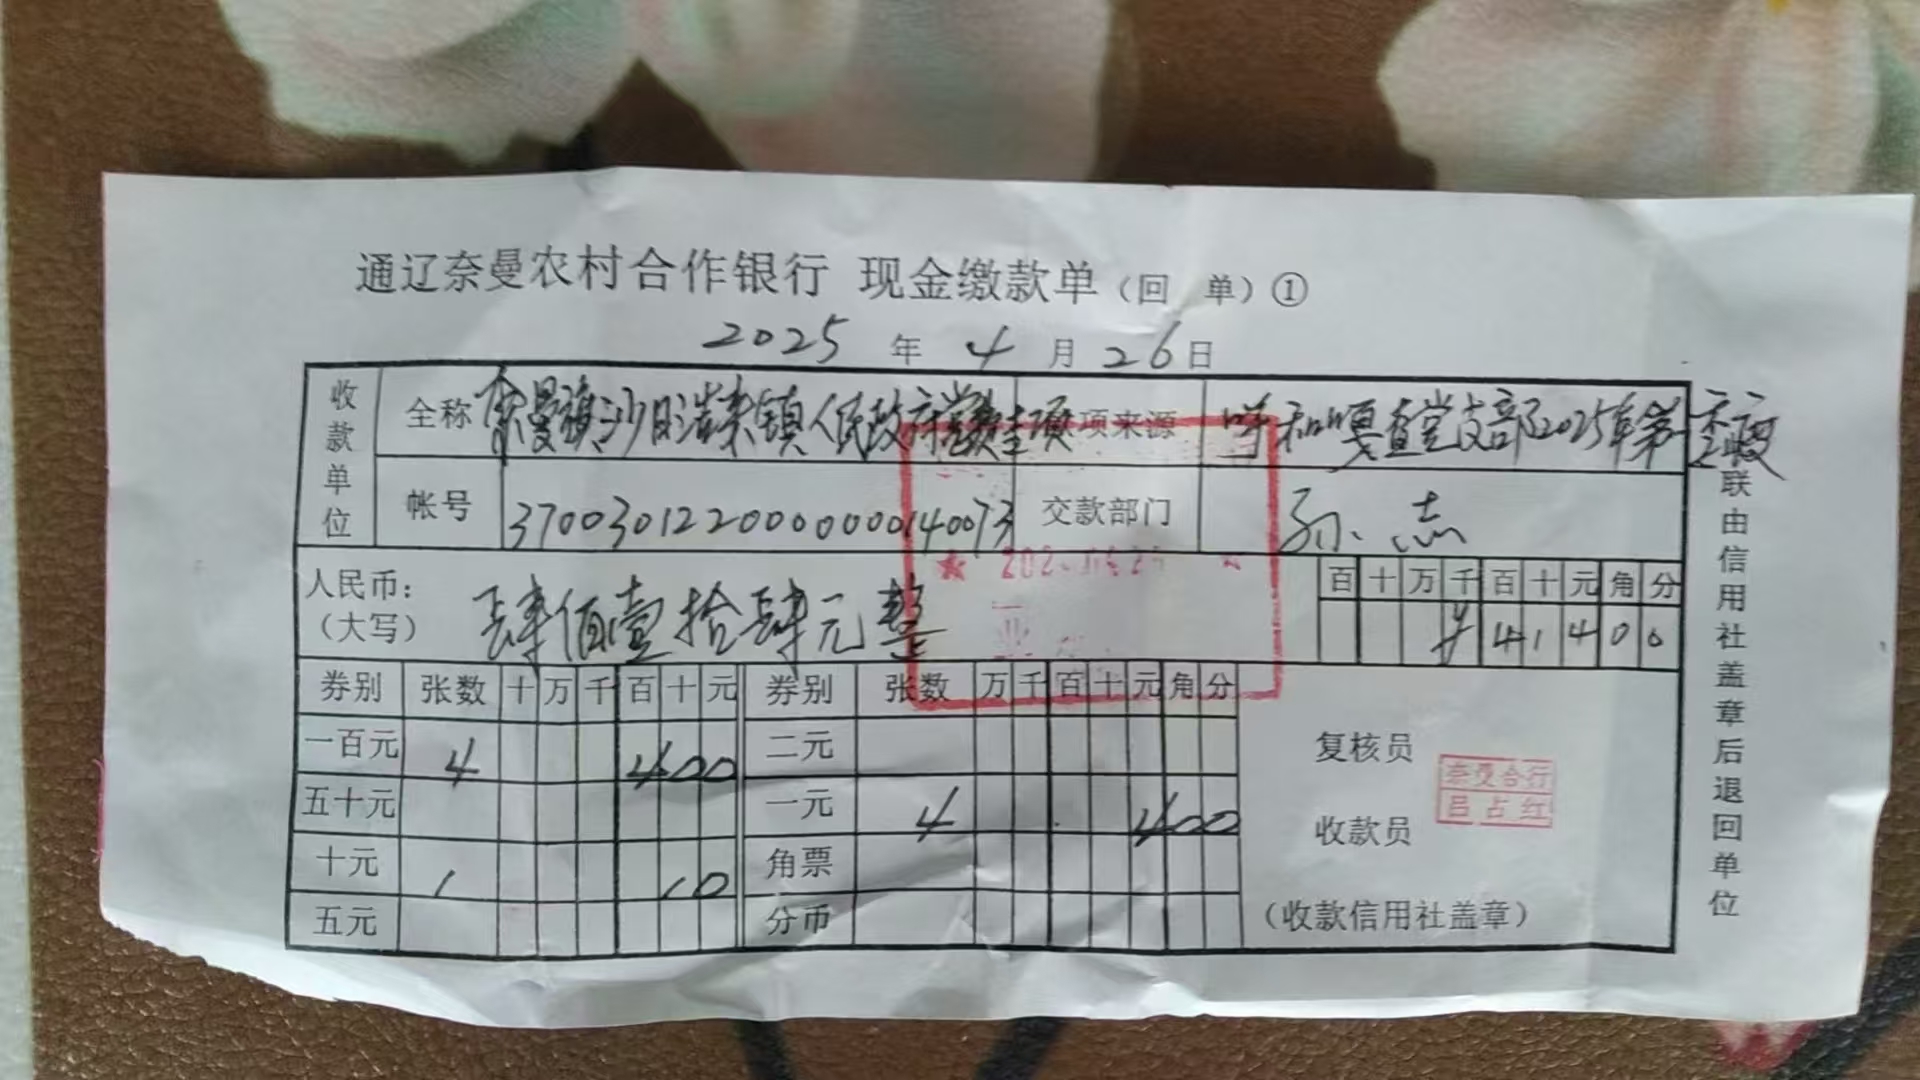 通辽奈曼农村合作银行 现金缴款单（回 单）①
2025 年 4 月 26 日
收款单位 全称 奈曼旗沙日浩来镇人民政府党费专项 项来源 呼和嘎查党支部2025年第 季度
帐号 3700301220000000140073 交款部门 孙志
人民币：
（大写） 肆佰壹拾肆元整
百 十 万 千 百 十 元 角 分
¥ 4 1 4 0 0
券别 张数 十 万 千 百 十 元 券别 张数 万 千 百 十 元 角 分
一百元 4 400 二元
五十元 一元 4 400
十元 1 10 角票
五元 分币
复核员
收款员
奈曼合行
吕占红
（收款信用社盖章）
联由信用社盖章后退回单位